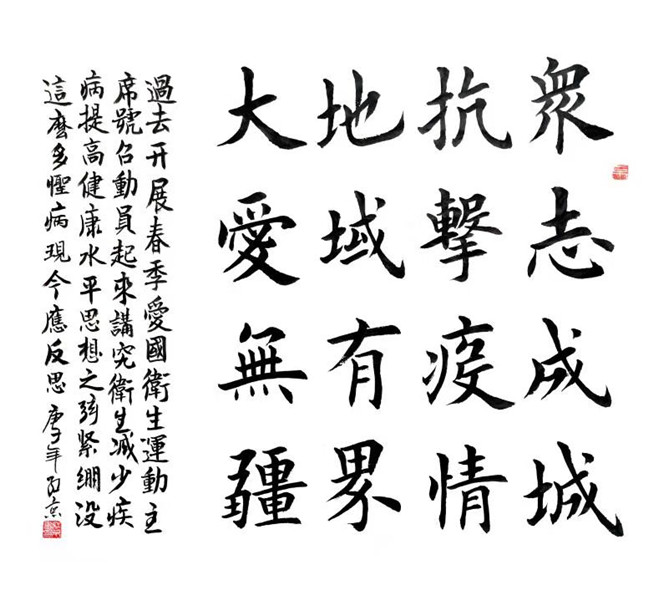 衆志成城
抗擊疫情
地域有界
大愛無疆
過去开展春季愛國衛生運動主
席號召動員起來講究衛生减少疾
病提高健康水平思想之弦緊綳没
這麽多怪病現今應反思 庚子年